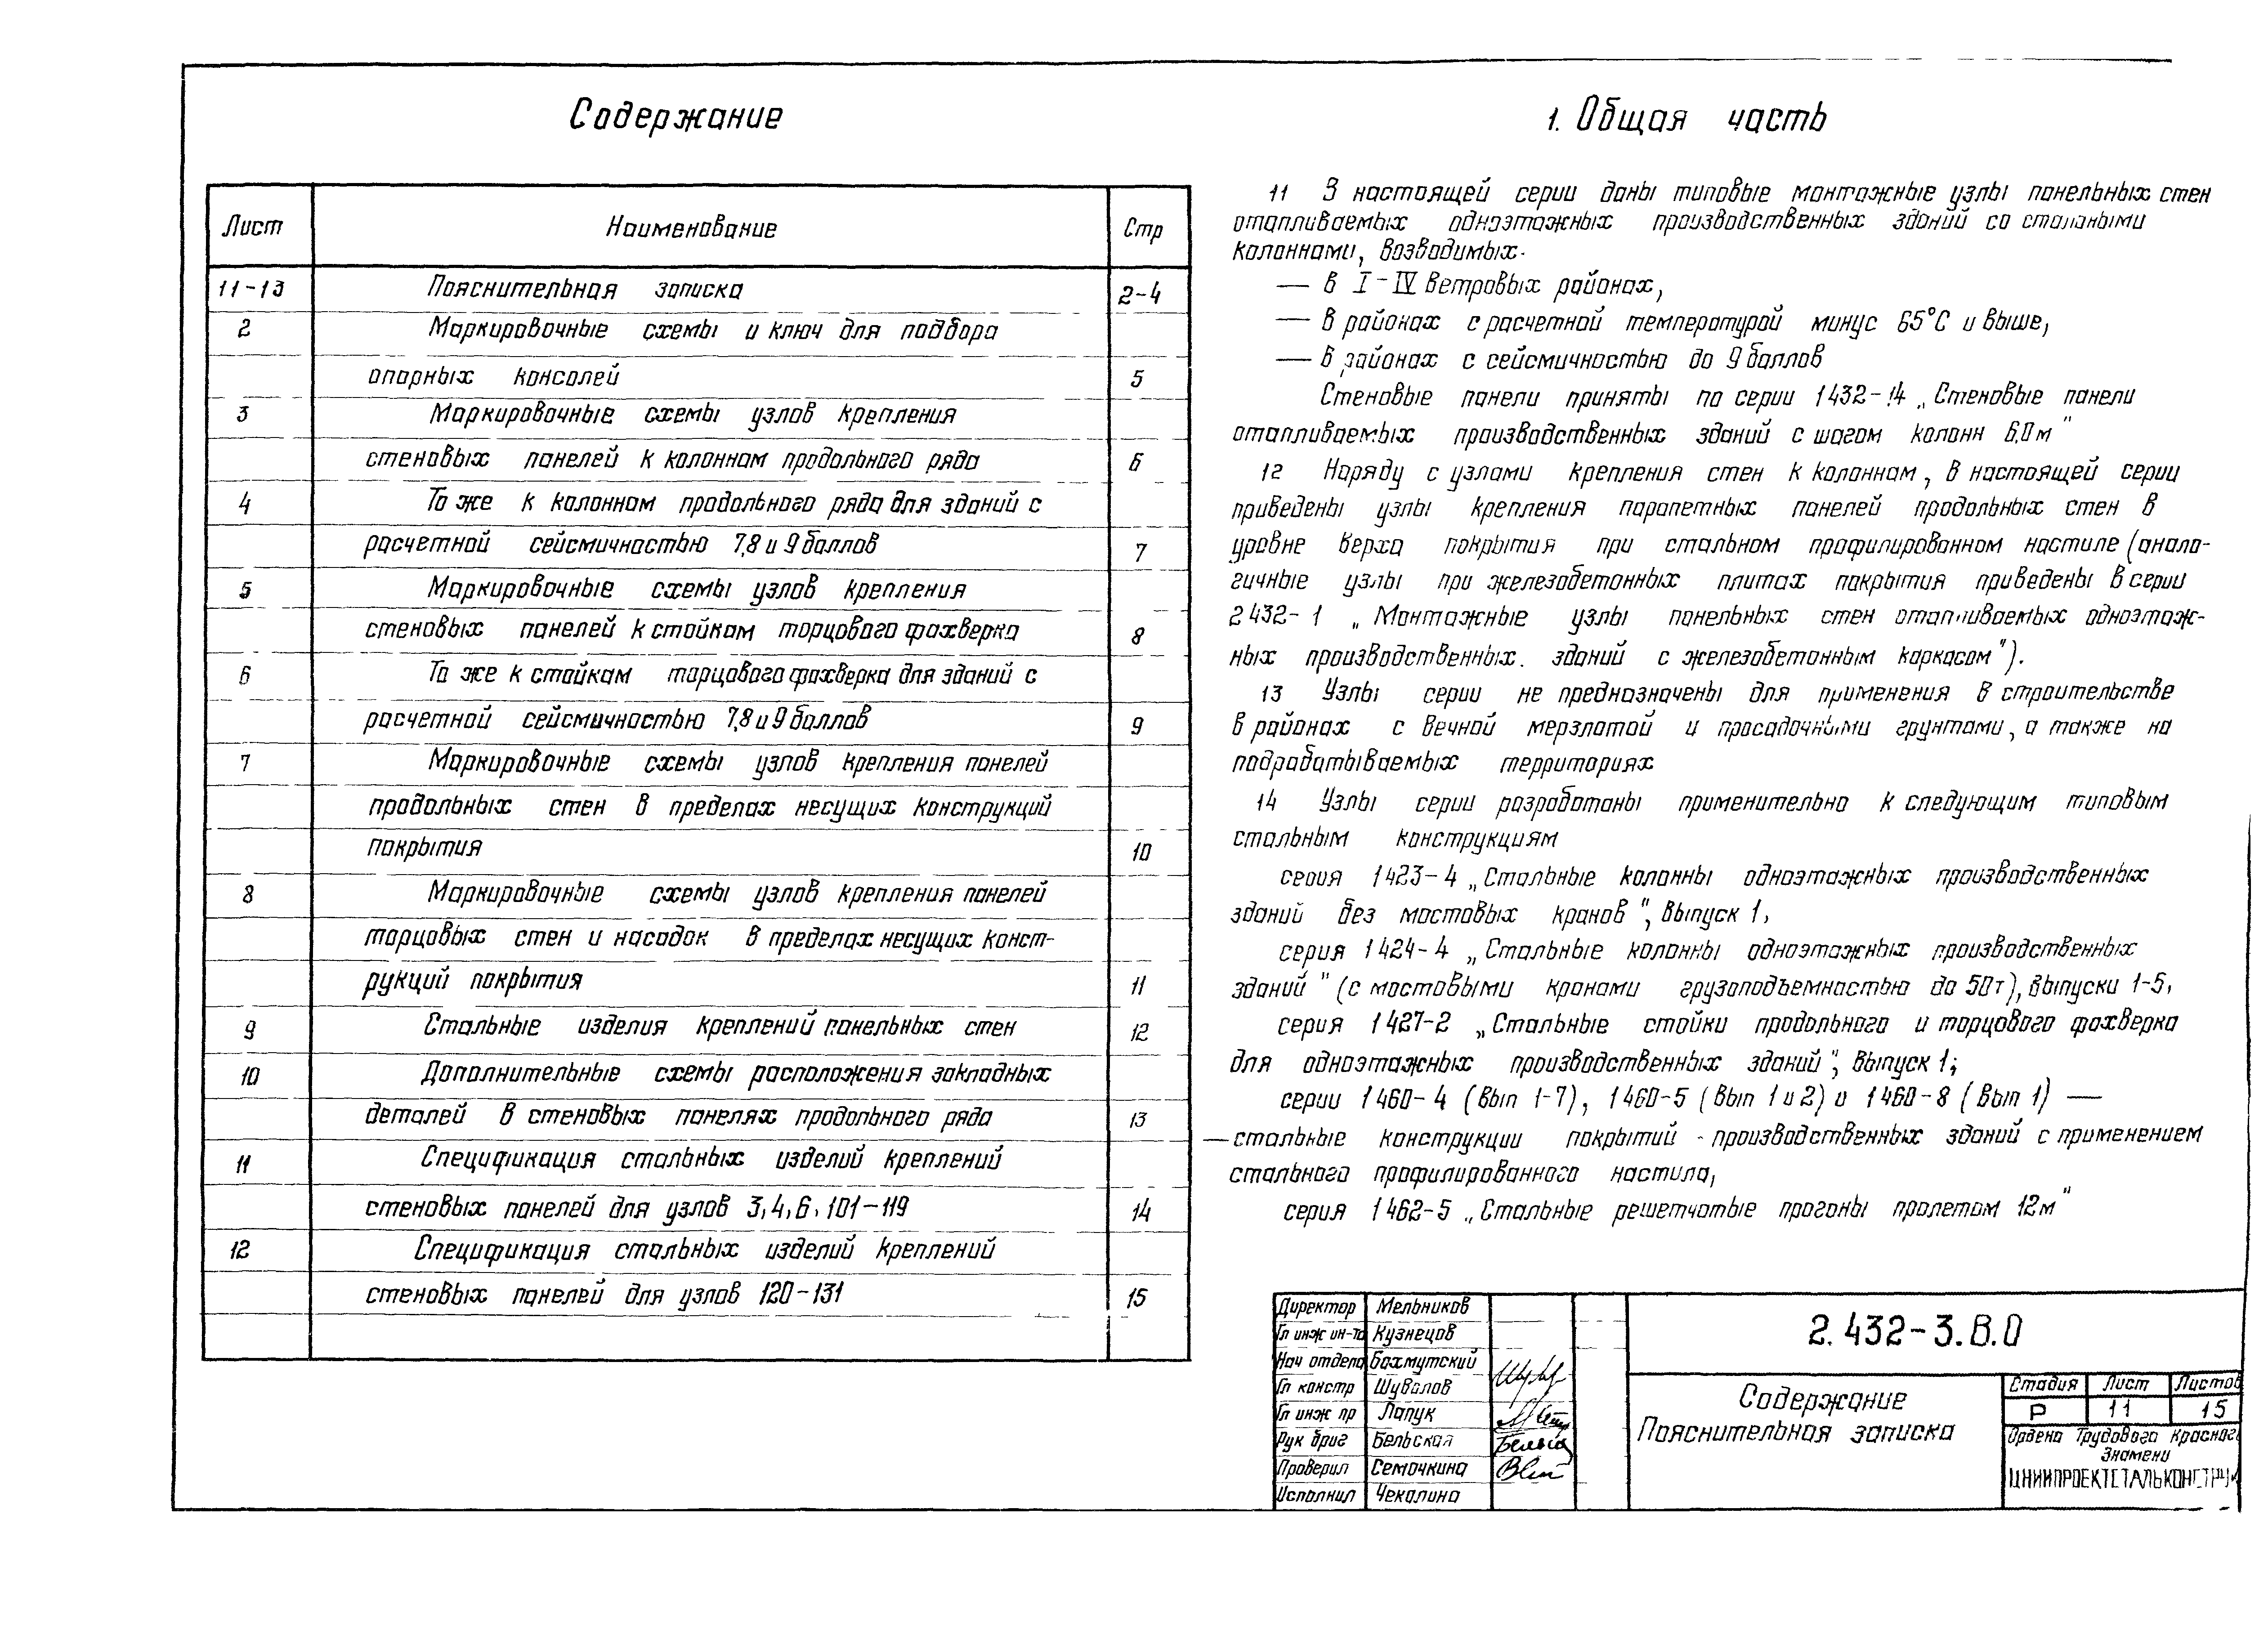 Содержание
Лист Наименование Стр
11-13 Пояснительная записка 2-4
2 Маркировочные схемы и ключ для подбора
опорных консолей 5
3 Маркировочные схемы узлов крепления
стеновых панелей к колоннам продольного ряда 6
4 То же к колоннам продольного ряда для зданий с
расчетной сейсмичностью 7,8 и 9 баллов 7
5 Маркировочные схемы узлов крепления
стеновых панелей к стойкам торцового фахверка 8
6 То же к стойкам торцового фахверка для зданий с
расчетной сейсмичностью 7,8 и 9 баллов 9
7 Маркировочные схемы узлов крепления панелей
продольных стен в пределах несущих конструкций
покрытия 10
8 Маркировочные схемы узлов крепления панелей
торцовых стен и насадок в пределах несущих конст-
рукций покрытия 11
9 Стальные изделия креплений панельных стен 12
10 Дополнительные схемы расположения закладных
деталей в стеновых панелях продольного ряда 13
11 Спецификация стальных изделий креплений
стеновых панелей для узлов 3,4,6,101-119 14
12 Спецификация стальных изделий креплений
стеновых панелей для узлов 120-131 15
1. Общая часть
11 В настоящей серии даны типовые монтажные узлы панельных стен
отапливаемых одноэтажных производственных зданий со стальными
колоннами, возводимых.
— в I-IV ветровых районах,
— в районах с расчетной температурой минус 65°С и выше,
— в районах с сейсмичностью до 9 баллов
Стеновые панели приняты по серии 1432-14 „Стеновые панели
отапливаемых производственных зданий с шагом колонн 6,0м"
12 Наряду с узлами крепления стен к колоннам, в настоящей серии
приведены узлы крепления парапетных панелей продольных стен в
уровне верха покрытия при стальном профилированном настиле (анало-
гичные узлы при железобетонных плитах покрытия приведены в серии
2432-1 „Монтажные узлы панельных стен отапливаемых одноэтаж-
ных производственных. зданий с железобетонным каркасом").
13 Узлы серии не предназначены для применения в строительстве
в районах с вечной мерзлотой и просадочными грунтами, а также на
подрабатываемых территориях
14 Узлы серии разработаны применительно к следующим типовым
стальным конструкциям
серия 1423-4 „Стальные колонны одноэтажных производственных
зданий без мостовых кранов", выпуск 1,
серия 1424-4 „Стальные колонны одноэтажных производственных
зданий" (с мостовыми кранами грузоподъемностью до 50т), выпуски 1-5,
серия 1427-2 „Стальные стойки продольного и торцового фахверка
для одноэтажных производственных зданий", выпуск 1;
серии 1460-4 (вып 1-7), 1460-5 (вып 1 и 2) и 1460-8 (вып 1) —
— стальные конструкции покрытий - производственных зданий с применением
стального профилированного настила,
серия 1462-5 „Стальные решетчатые прогоны пролетом 12м"
Директор Мельников
Гл инж ин-та Кузнецов
Нач отдела Бахмутский
Гл констр Шувалов
Гл инж пр Лапук
Рук бриг Бельская
Проверил Семочкина
Исполнил Чекалина
2.432-3.В.0
Содержание
Пояснительная записка
Стадия Лист Листов
Р 11 15
Ордена Трудового Красного
Знамени